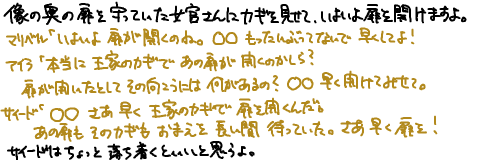 像の奥の扉を守っていた女官さんにカギを見せて、いよいよ扉を開けますよ。
マリベル「いよいよ 扉が開くのね。○○ もったいぶってないで 早くしてよ!
アイラ「本当に 王家のカギで あの扉が 開くのかしら?
扉が開いたとして その向こうには 何があるの? ○○ 早く開けてみせて。
サイード「○○ さあ 早く 王家のカギで 扉を開くんだ。
あの扉も そのカギも おまえを 長い間 待っていた。さあ 早く 扉を!
サイードはちょっと 落ち着くといいと思うよ。